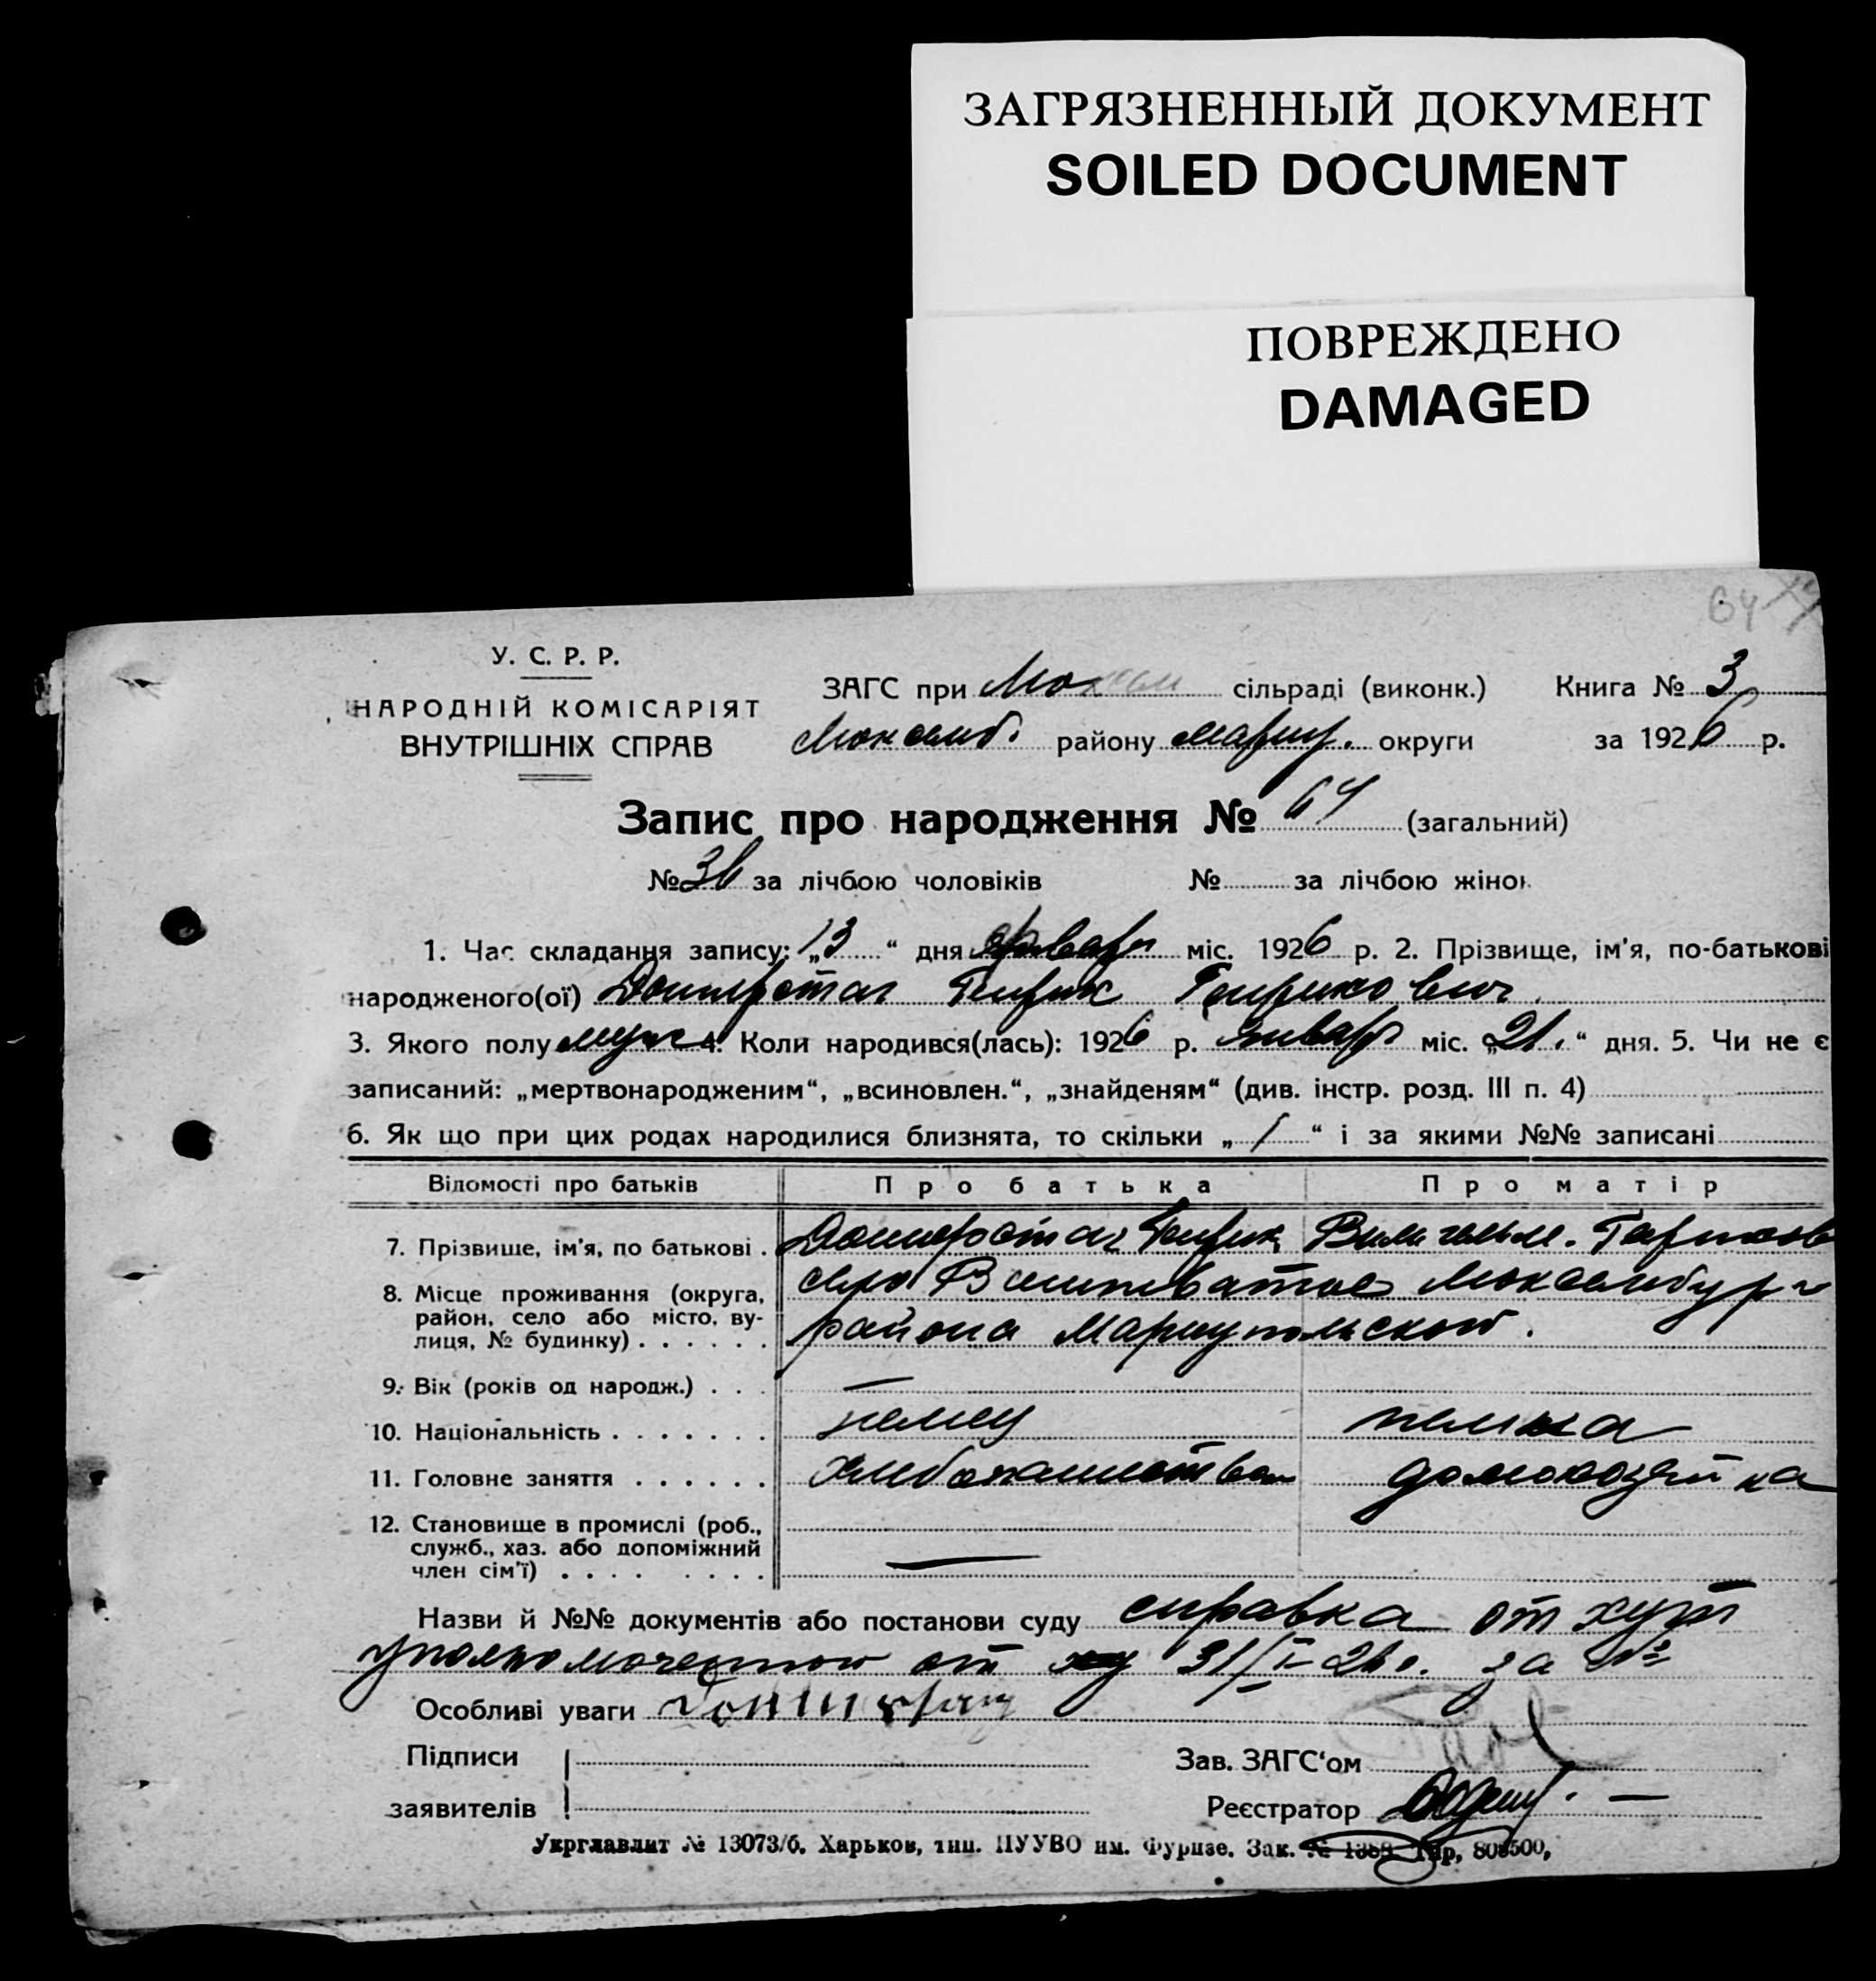 ЗАГРЯЗНЕННЫЙ ДОКУМЕНТ
SOILED DOCUMENT
ПОВРЕЖДЕНО
DAMAGED
64
У. С. Р. Р.
НАРОДНІЙ КОМІСАРІЯТ
ВНУТРІШНІХ СПРАВ
ЗАГС при сільраді (виконк.) Книга № 3
району Мариуп. округи за 1926 р.
Запис про народження № 64 (загальний)
№ 36 за лічбою чоловіків № за лічбою жінок
1. Час складання запису: „13“ дня міс. 1926 р. 2. Прізвище, ім'я, по-батькові
народженого(ої) Генрих Генрихович
3. Якого полу муж 4. Коли народився(лась): 1926 р. январь міс. „21.“ дня. 5. Чи не є
записаний: „мертвонародженим“, „всиновлен.“, „знайденям“ (див. інстр. розд. III п. 4)
6. Як що при цих родах народилися близнята, то скільки „/“ і за якими №№ записані
Відомості про батьків Про батька Про матір
7. Прізвище, ім'я, по батькові . Генрих
8. Місце проживання (округа, село
район, село або місто, ву- района Мариупольской.
лиця, № будинку) . . . . . .
9. Вік (років од народж.) . . . —
10. Національність . . . . . . . немец немка
11. Головне заняття . . . . . . хлебопашество домохозяйка
12. Становище в промислі (роб.,
служб., хаз. або допоміжний —
член сім'ї) . . . . . . . .
Назви й №№ документів або постанови суду справка от хут
уполномоченного от 31/I-26 г. за №
Особливі уваги
Підписи Зав. ЗАГС'ом
заявителів Реєстратор
Укрглавлит № 13073/б. Харьков, тип. ПУУВО им. Фрунзе. Зак. № 1388 Тир, 800500,